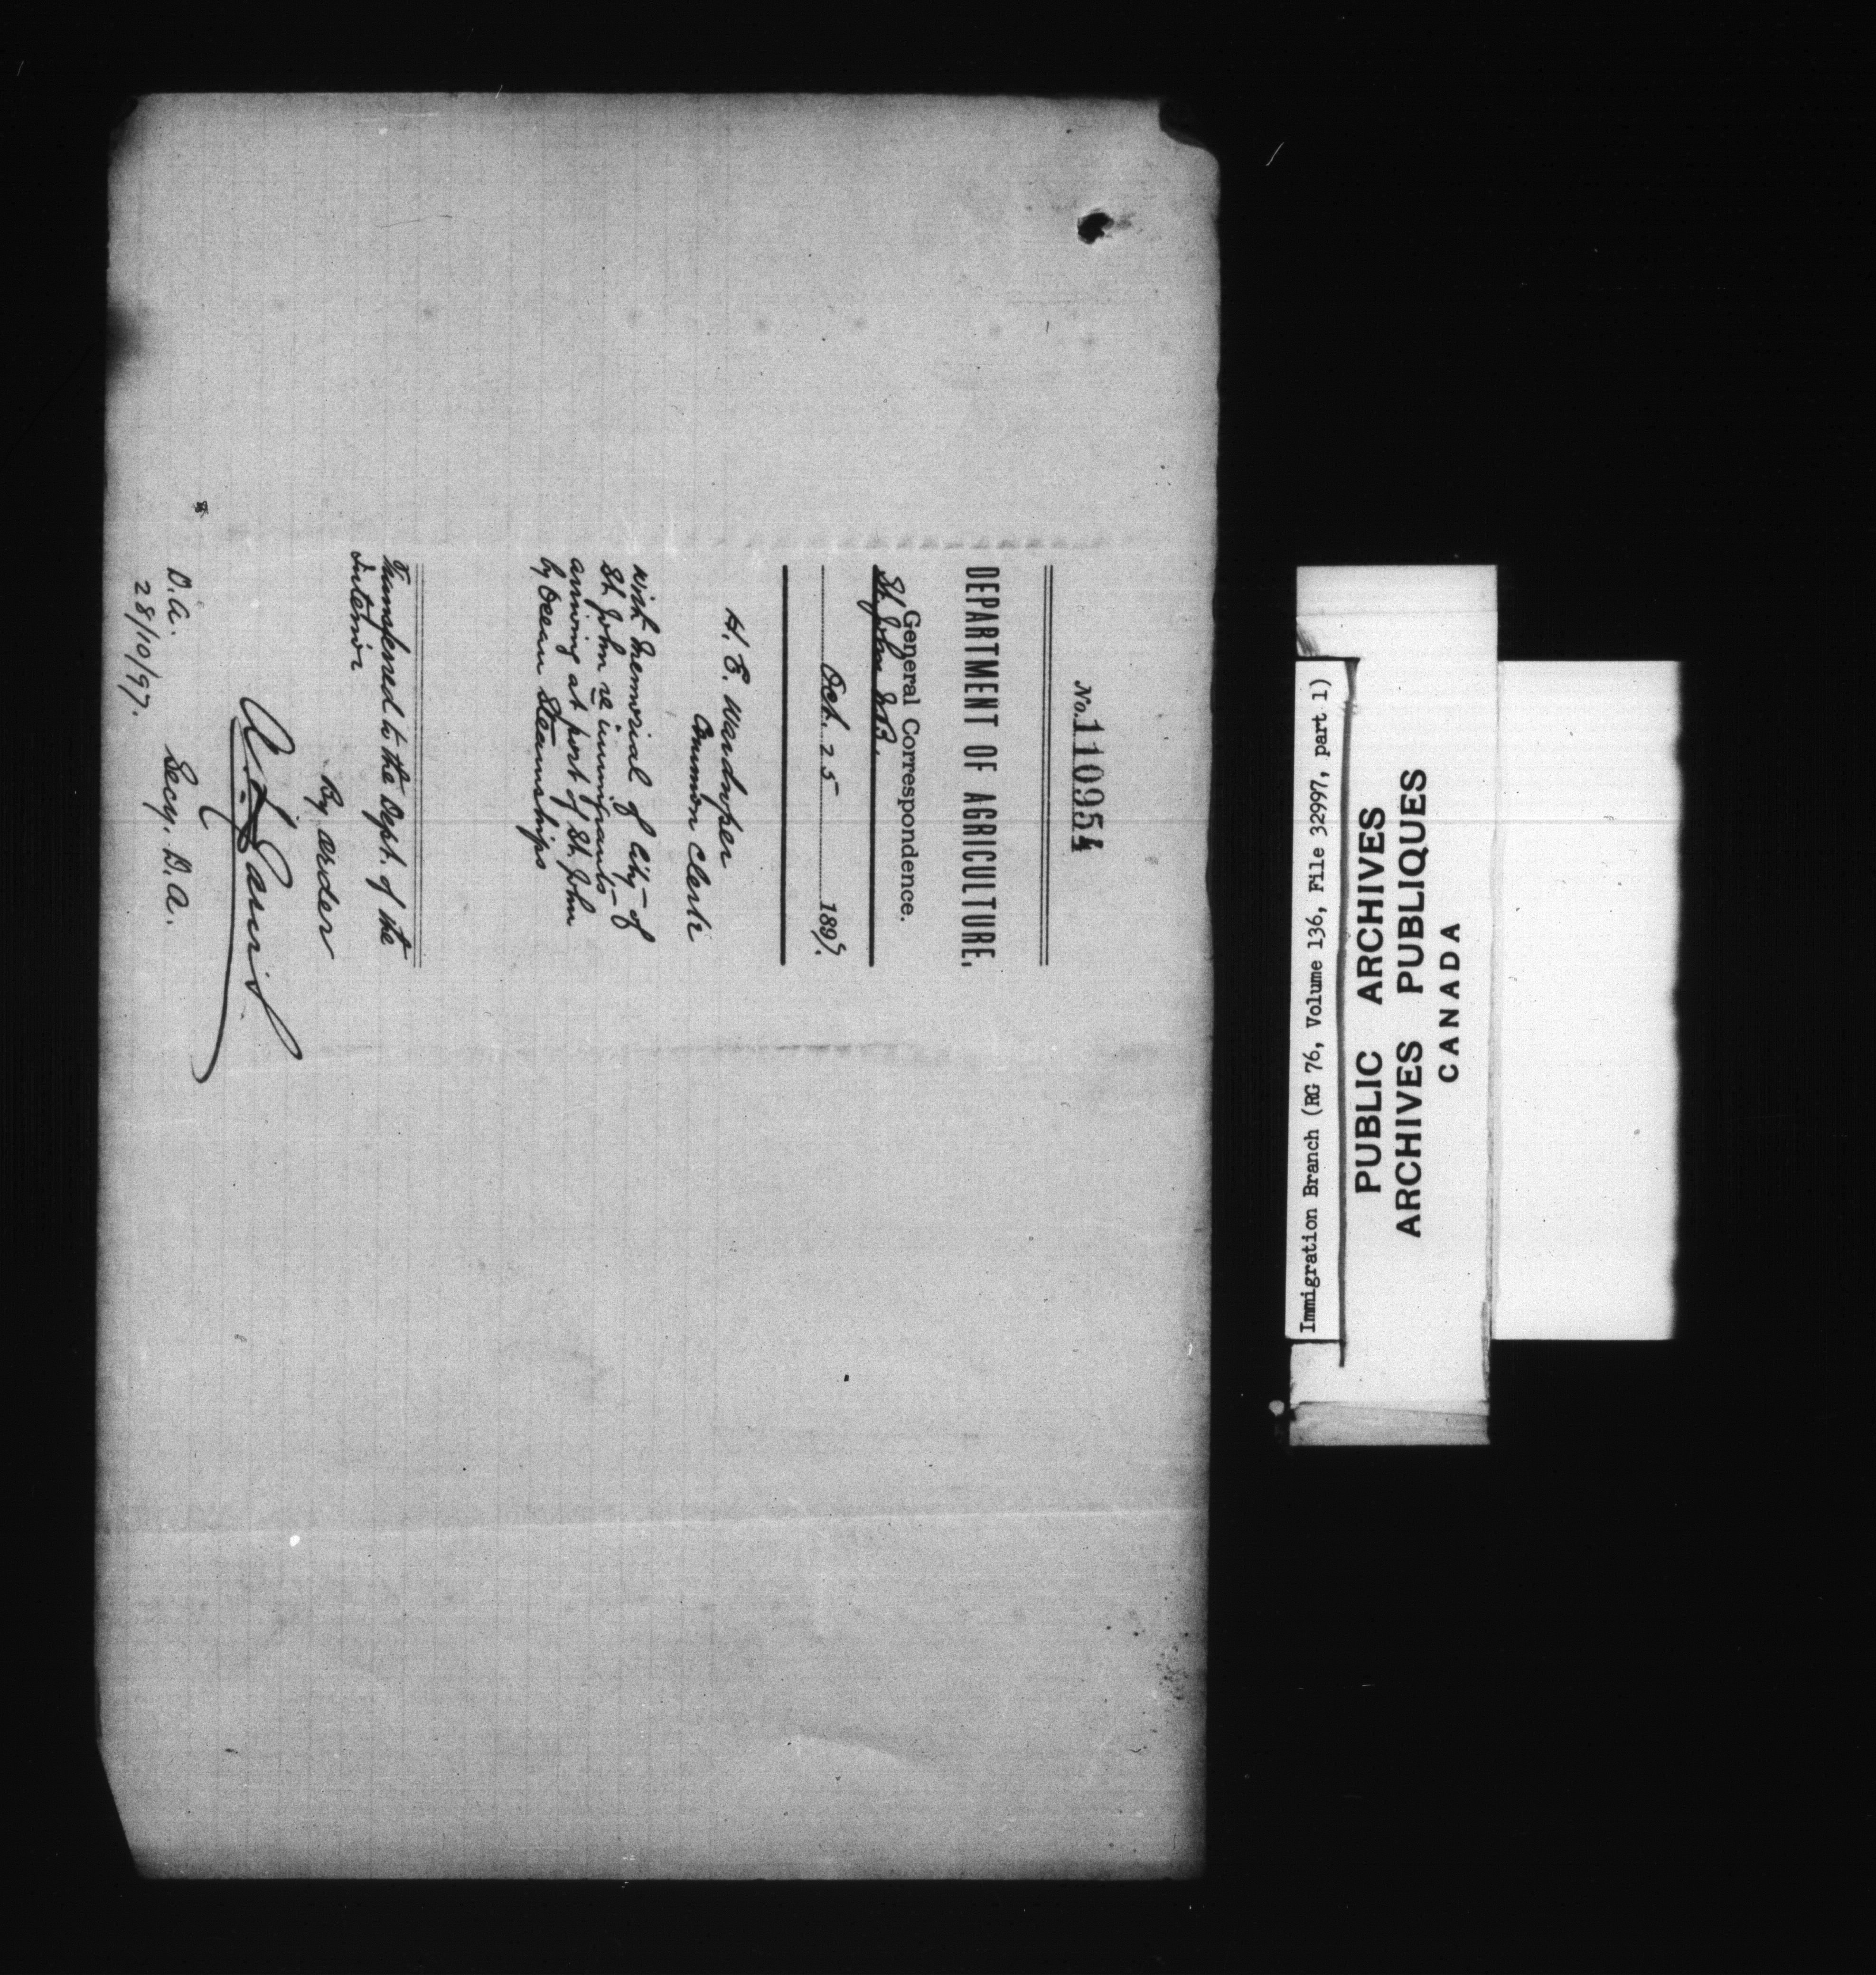 No. 110954
DEPARTMENT OF AGRICULTURE,
General Correspondence.
St. John N.B.
Oct. 25 1897.
H. E. Wardroper
Common Clerk
With Memorial of City of
St. John re immigrants
arriving at port of St. John
by Ocean Steamships
Transferred to the Dept. of the
Interior
By order
Secy. D. A.
D. A.
28/10/97.
Immigration Branch (RG 76, Volume 136, File 32997, part 1)
PUBLIC ARCHIVES
ARCHIVES PUBLIQUES
CANADA